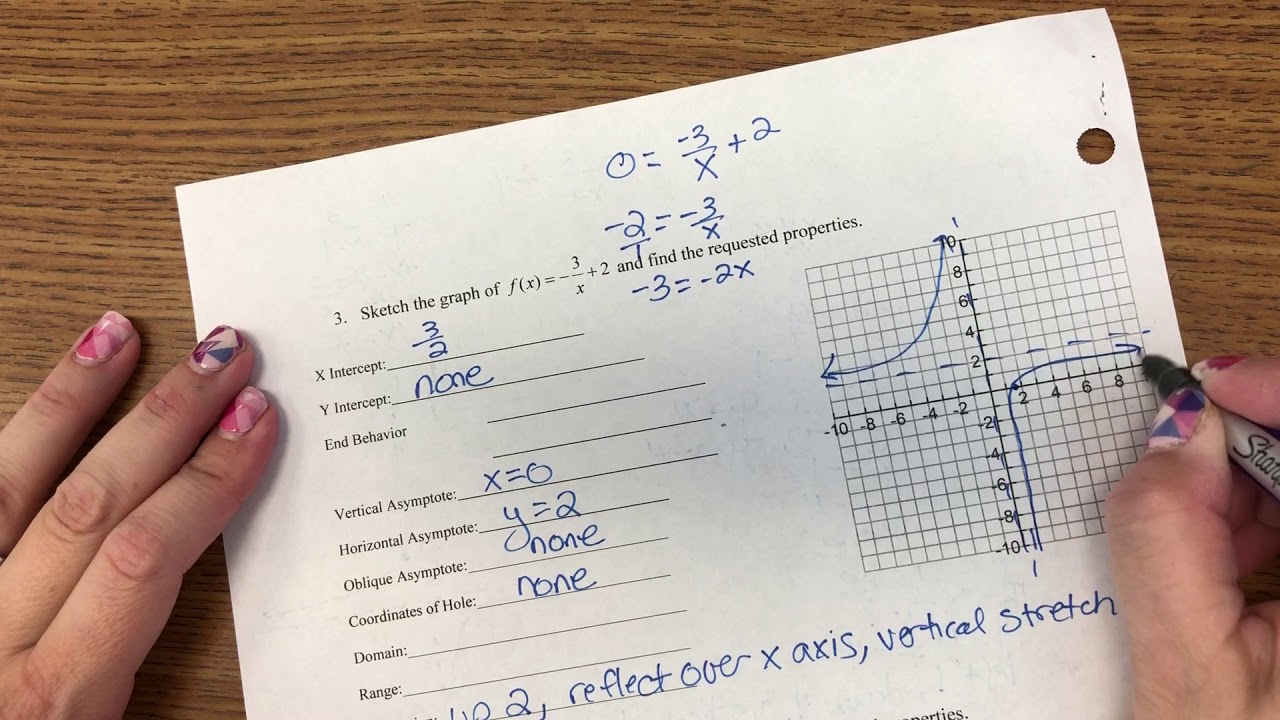 0 = -3/x + 2
-2/1 = -3/x
-3 = -2x
3. Sketch the graph of f(x) = -3/x + 2 and find the requested properties.
X Intercept: 3/2
Y Intercept: none
End Behavior
Vertical Asymptote: x=0
Horizontal Asymptote: y=2
Oblique Asymptote: none
Coordinates of Hole: none
Domain:
Range:
up 2, reflect over x axis, vertical stretch
10
8
6
4
2
-10 -8 -6 -4 -2 2 4 6 8
-2
-4
-6
-8
-10
Sharp